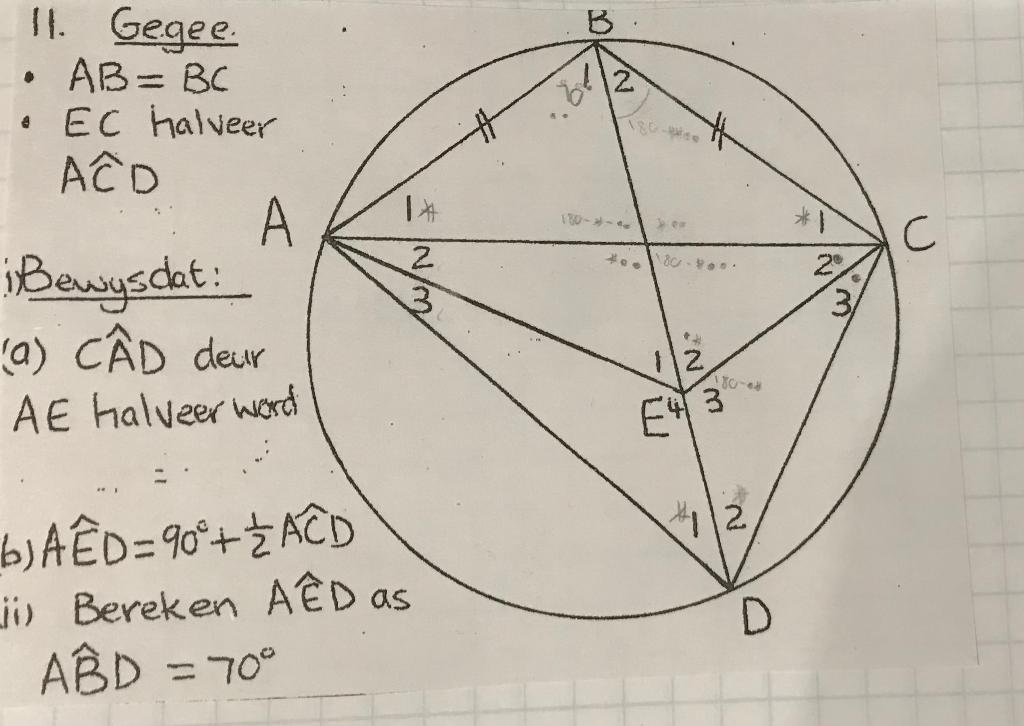 11. Gegee.
• AB = BC
• EC halveer
AĈD
i) Bewys dat:
(a) CÂD deur
AE halveer word
=
(b) AÊD = 90° + ½ AĈD
ii) Bereken AÊD as
AB̂D = 70°
B
1 2
180-*•••
A
1*
*1
C
180-*-••
*••
2
*••
180-*••
2•
3
3•
•*
1 2
E 4 3
180-•*
*1 2*
D